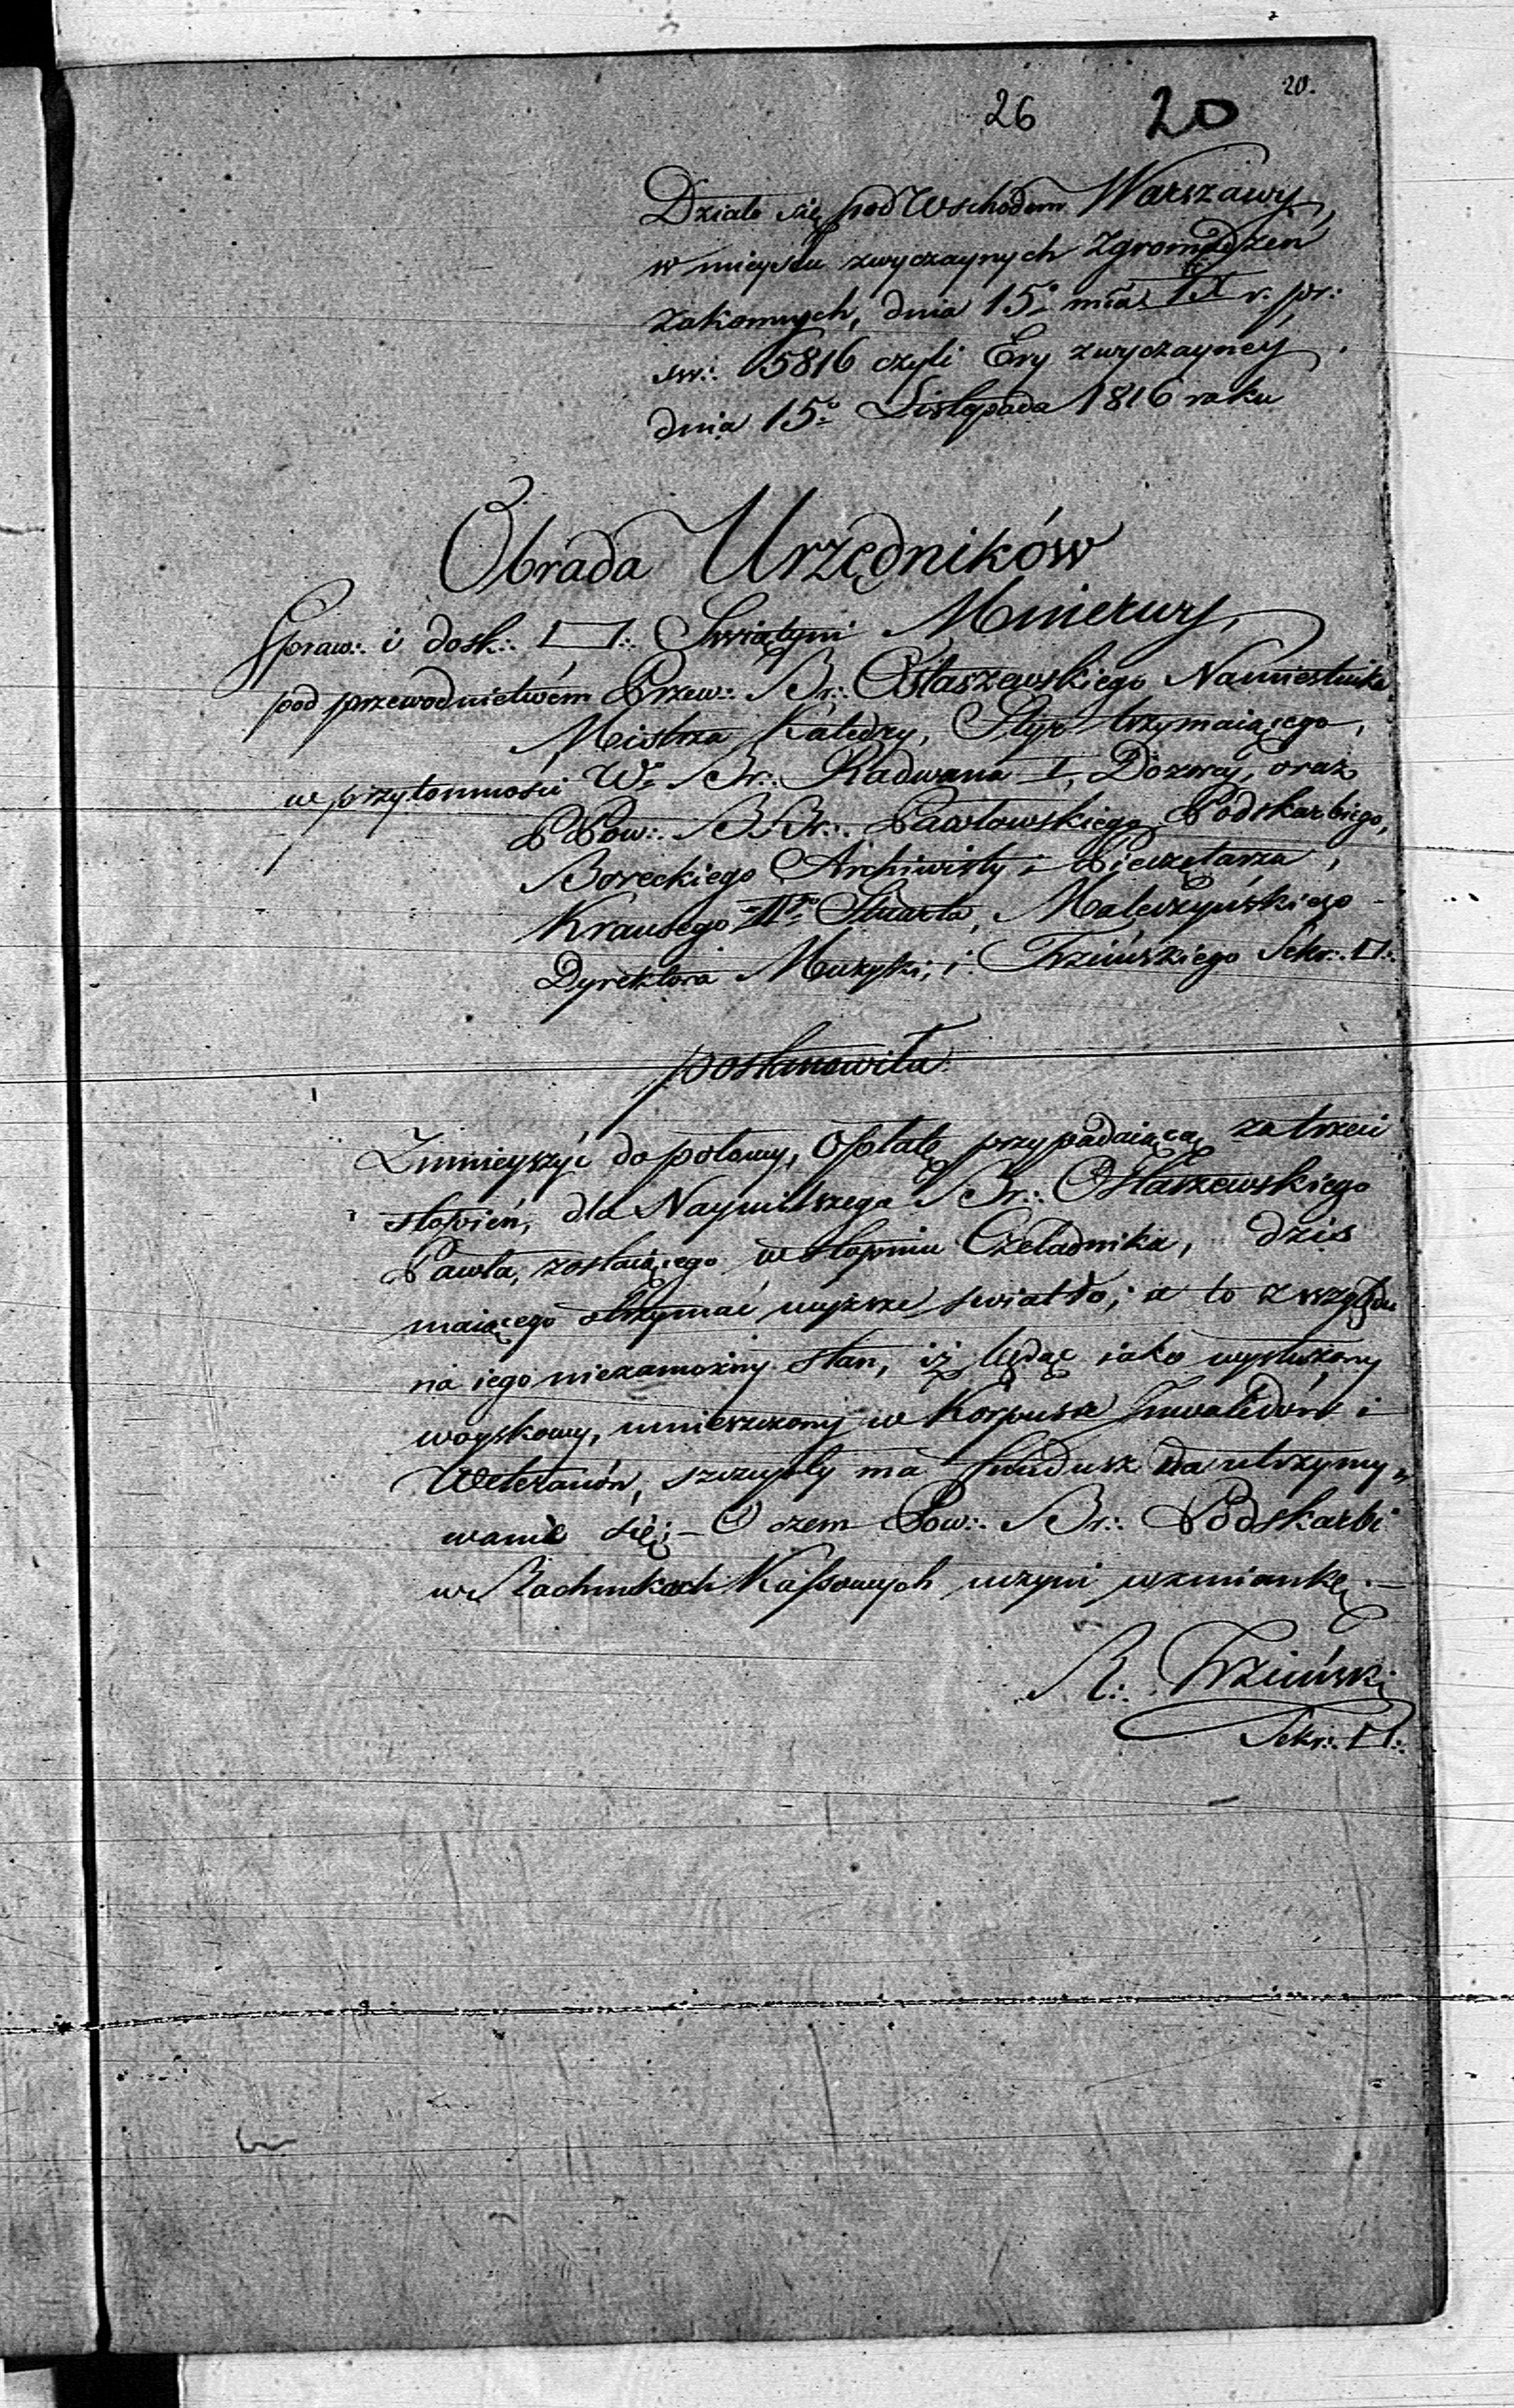 20.
26 20
Działo się pod Wschodem Warszawy,
w mieyscu zwyczaynych Zgromadzeń
zakonnych, dnia 15º mca IX r. pr:
sw:. 5816 czyli Ery zwyczayney
dnia 15º Listopada 1816 roku
Obrada Urzędników
Spraw:. i dosk:. □:. Swiątyni Minerwy,
pod przewodnictwem Przew:. Br:. Ostaszewskiego Namiestnika
Mistrza Katedry, Styr trzymaiącego,
w przytomności Wº Br:. Radwana I. Dozorcy, oraz
PPow:. BBr:. Pawłowskiego Podskarbiego,
Boreckiego Archiwisty i Pieczętarza,
Krausego IIgo Stuarta, Malczyńskiego
Dyrektora Muzyki, i Trzcińskiego Sekr:. □:.
postanowiła
Zmnieyszyć do połowy, Opłatę przypadaiącą za trzeci
stopień, dla Naymilszego Br:. Ostaszewskiego
Pawła, zostaiącego w stopniu Czeladnika, dziś
maiącego otrzymać wyższe swiatło; a to z względu
na iego niezamożny stan, iż będąc iako wysłużony
woyskowy, umieszczony w Korpusie Inwalidów i
Weteranów, szczupły ma fundusz na utrzymy=
wanie się;— O czem Pow:. Br:. Podskarbi
w Rachunkach Kassowych uczyni wzmiankę.—
R:. Trzciński
Sekr:. □:.